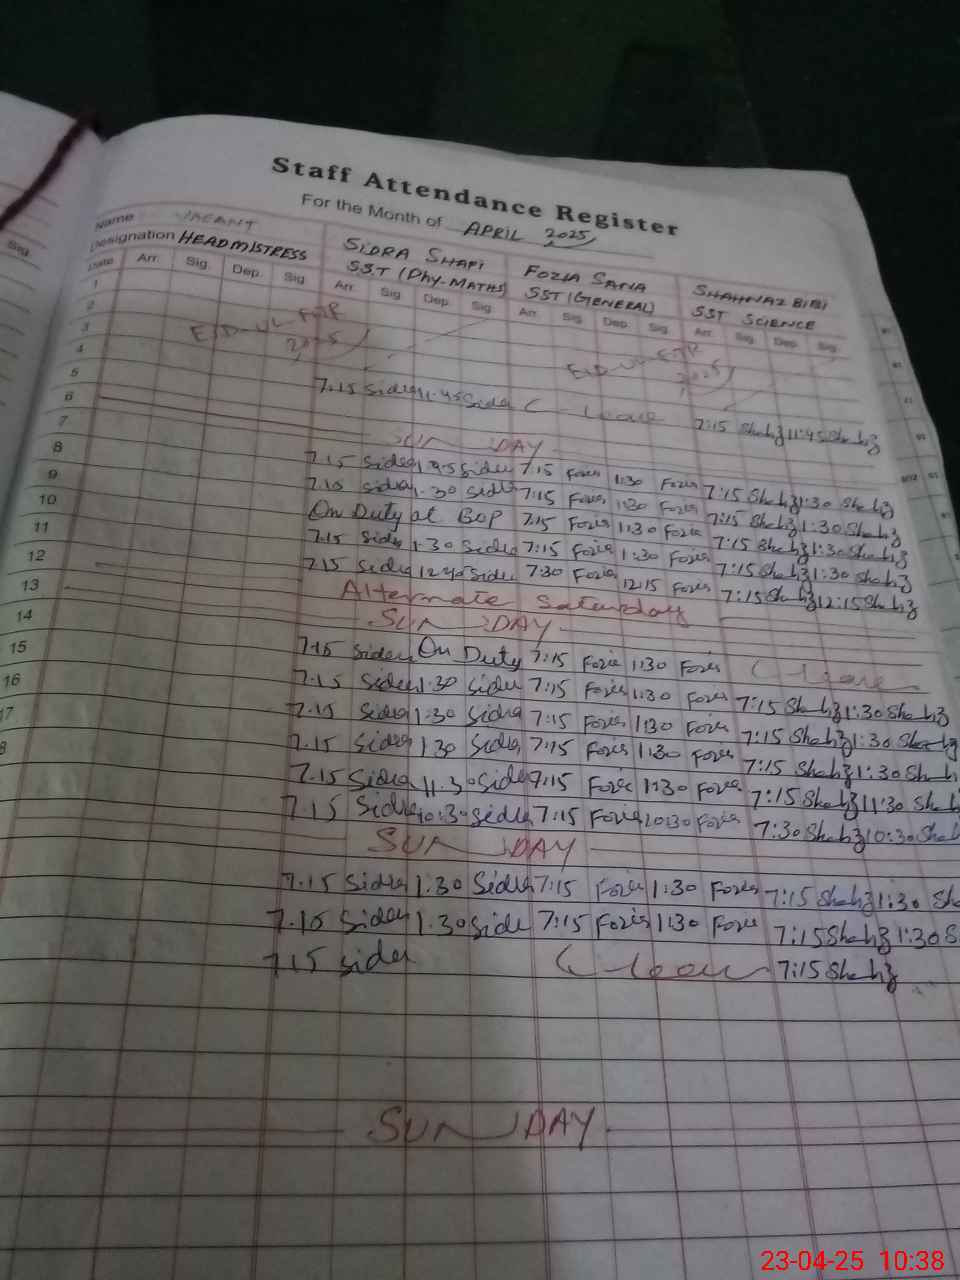 Staff Attendance Register
For the Month of APRIL 2025
Name VACANT SIDRA SHAFI FOZIA SANA SHAHNAZ BIBI
Designation HEADMISTRESS SST (Phy-MATHS) SST (GENERAL) SST SCIENCE
Date Arr. Sig. Dep. Sig. Arr. Sig. Dep. Sig. Arr. Sig. Dep. Sig. Arr. Sig. Dep. Sig.
1
2
3 EID-UL-FITR 2025 EID-UL-FITR 2025
4
5 7.15 Sidra 11.45 Sidra C-leave 7:15 Shahz 11:45 Shahz
6 SUNDAY
7 7.15 Sidra Sidra 7:15 Fozia 1:30 Fozia 7:15 Shahz 1:30 Shahz
8 7.15 Sidra 1.30 Sidra 7:15 Fozia 1:30 Fozia 7:15 Shahz 1:30 Shahz
9 On Duty at BOP 7:15 Fozia 1:30 Fozia 7:15 Shahz 1:30 Shahz
10 7.15 Sidra 1.30 Sidra 7:15 Fozia 1:30 Fozia 7:15 Shahz 1:30 Shahz
11 7.15 Sidra Sidra 7:30 Fozia 12:15 Fozia 7:15 Shahz 12:15 Shahz
12 Alternate Saturday
13 SUNDAY
14 7.15 Sidra On Duty 7:15 Fozia 1:30 Fozia C-leave
15 7.15 Sidra 1.30 Sidra 7:15 Fozia 1:30 Fozia 7:15 Shahz 1:30 Shahz
16 7.15 Sidra 1:30 Sidra 7:15 Fozia 1:30 Fozia 7:15 Shahz 1:30 Shahz
17 7.15 Sidra 1:30 Sidra 7:15 Fozia 1:30 Fozia 7:15 Shahz 1:30 Shah
8 7.15 Sidra 11.30 Sidra 7:15 Fozia 11:30 Fozia 7:15 Shahz 11:30 Shah
7.15 Sidra 10:30 Sidra 7:15 Fozia 10:30 Fozia 7:30 Shahz 10:30 Shah
SUNDAY
7.15 Sidra 1:30 Sidra 7:15 Fozia 1:30 Fozia 7:15 Shahz 1:30 Sha
7.15 Sidra 1:30 Sidra 7:15 Fozia 1:30 Fozia 7:15 Shahz 1:30 S
7.15 Sidra C-leave 7:15 Shahz
SUNDAY
23-04-25 10:38